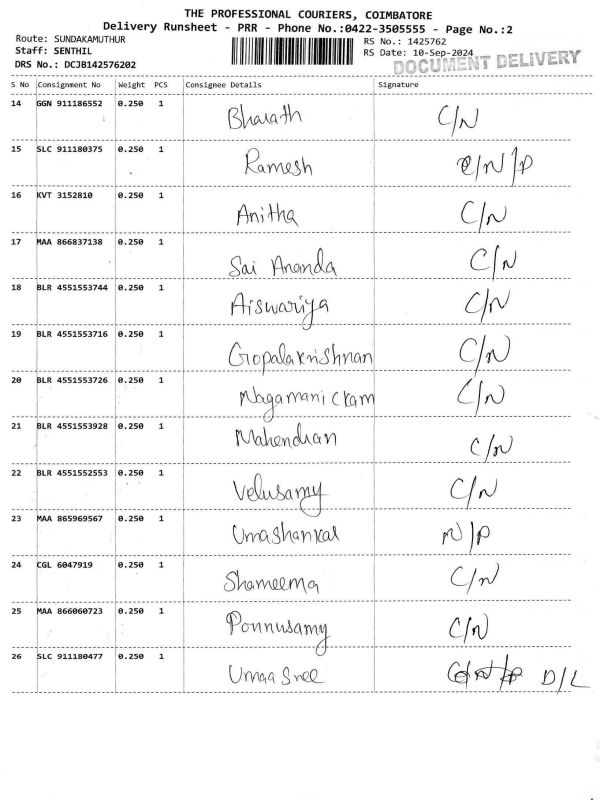 THE PROFESSIONAL COURIERS, COIMBATORE
Delivery Runsheet - PRR - Phone No.:0422-3505555 - Page No.:2
Route: SUNDAKAMUTHUR RS No.: 1425762
Staff: SENTHIL RS Date: 10-Sep-2024
DRS No.: DCJB142576202 DOCUMENT DELIVERY
S No Consignment No Weight PCS Consignee Details Signature
14 GGN 911186552 0.250 1 Bharath C/N
15 SLC 911180375 0.250 1 Ramesh C/N/P
16 KVT 3152810 0.250 1 Anitha C/N
17 MAA 866837138 0.250 1 Sai Ananda C/N
18 BLR 4551553744 0.250 1 Aiswariya C/N
19 BLR 4551553716 0.250 1 Gopalakrishnan C/N
20 BLR 4551553726 0.250 1 Nagamanickam C/N
21 BLR 4551553928 0.250 1 Mahendran C/N
22 BLR 4551552553 0.250 1 Velusamy C/N
23 MAA 865969567 0.250 1 Umashankar N/P
24 CGL 6047919 0.250 1 Shameema C/N
25 MAA 866060723 0.250 1 Ponnusamy C/N
26 SLC 911180477 0.250 1 Umaa Sree D/L